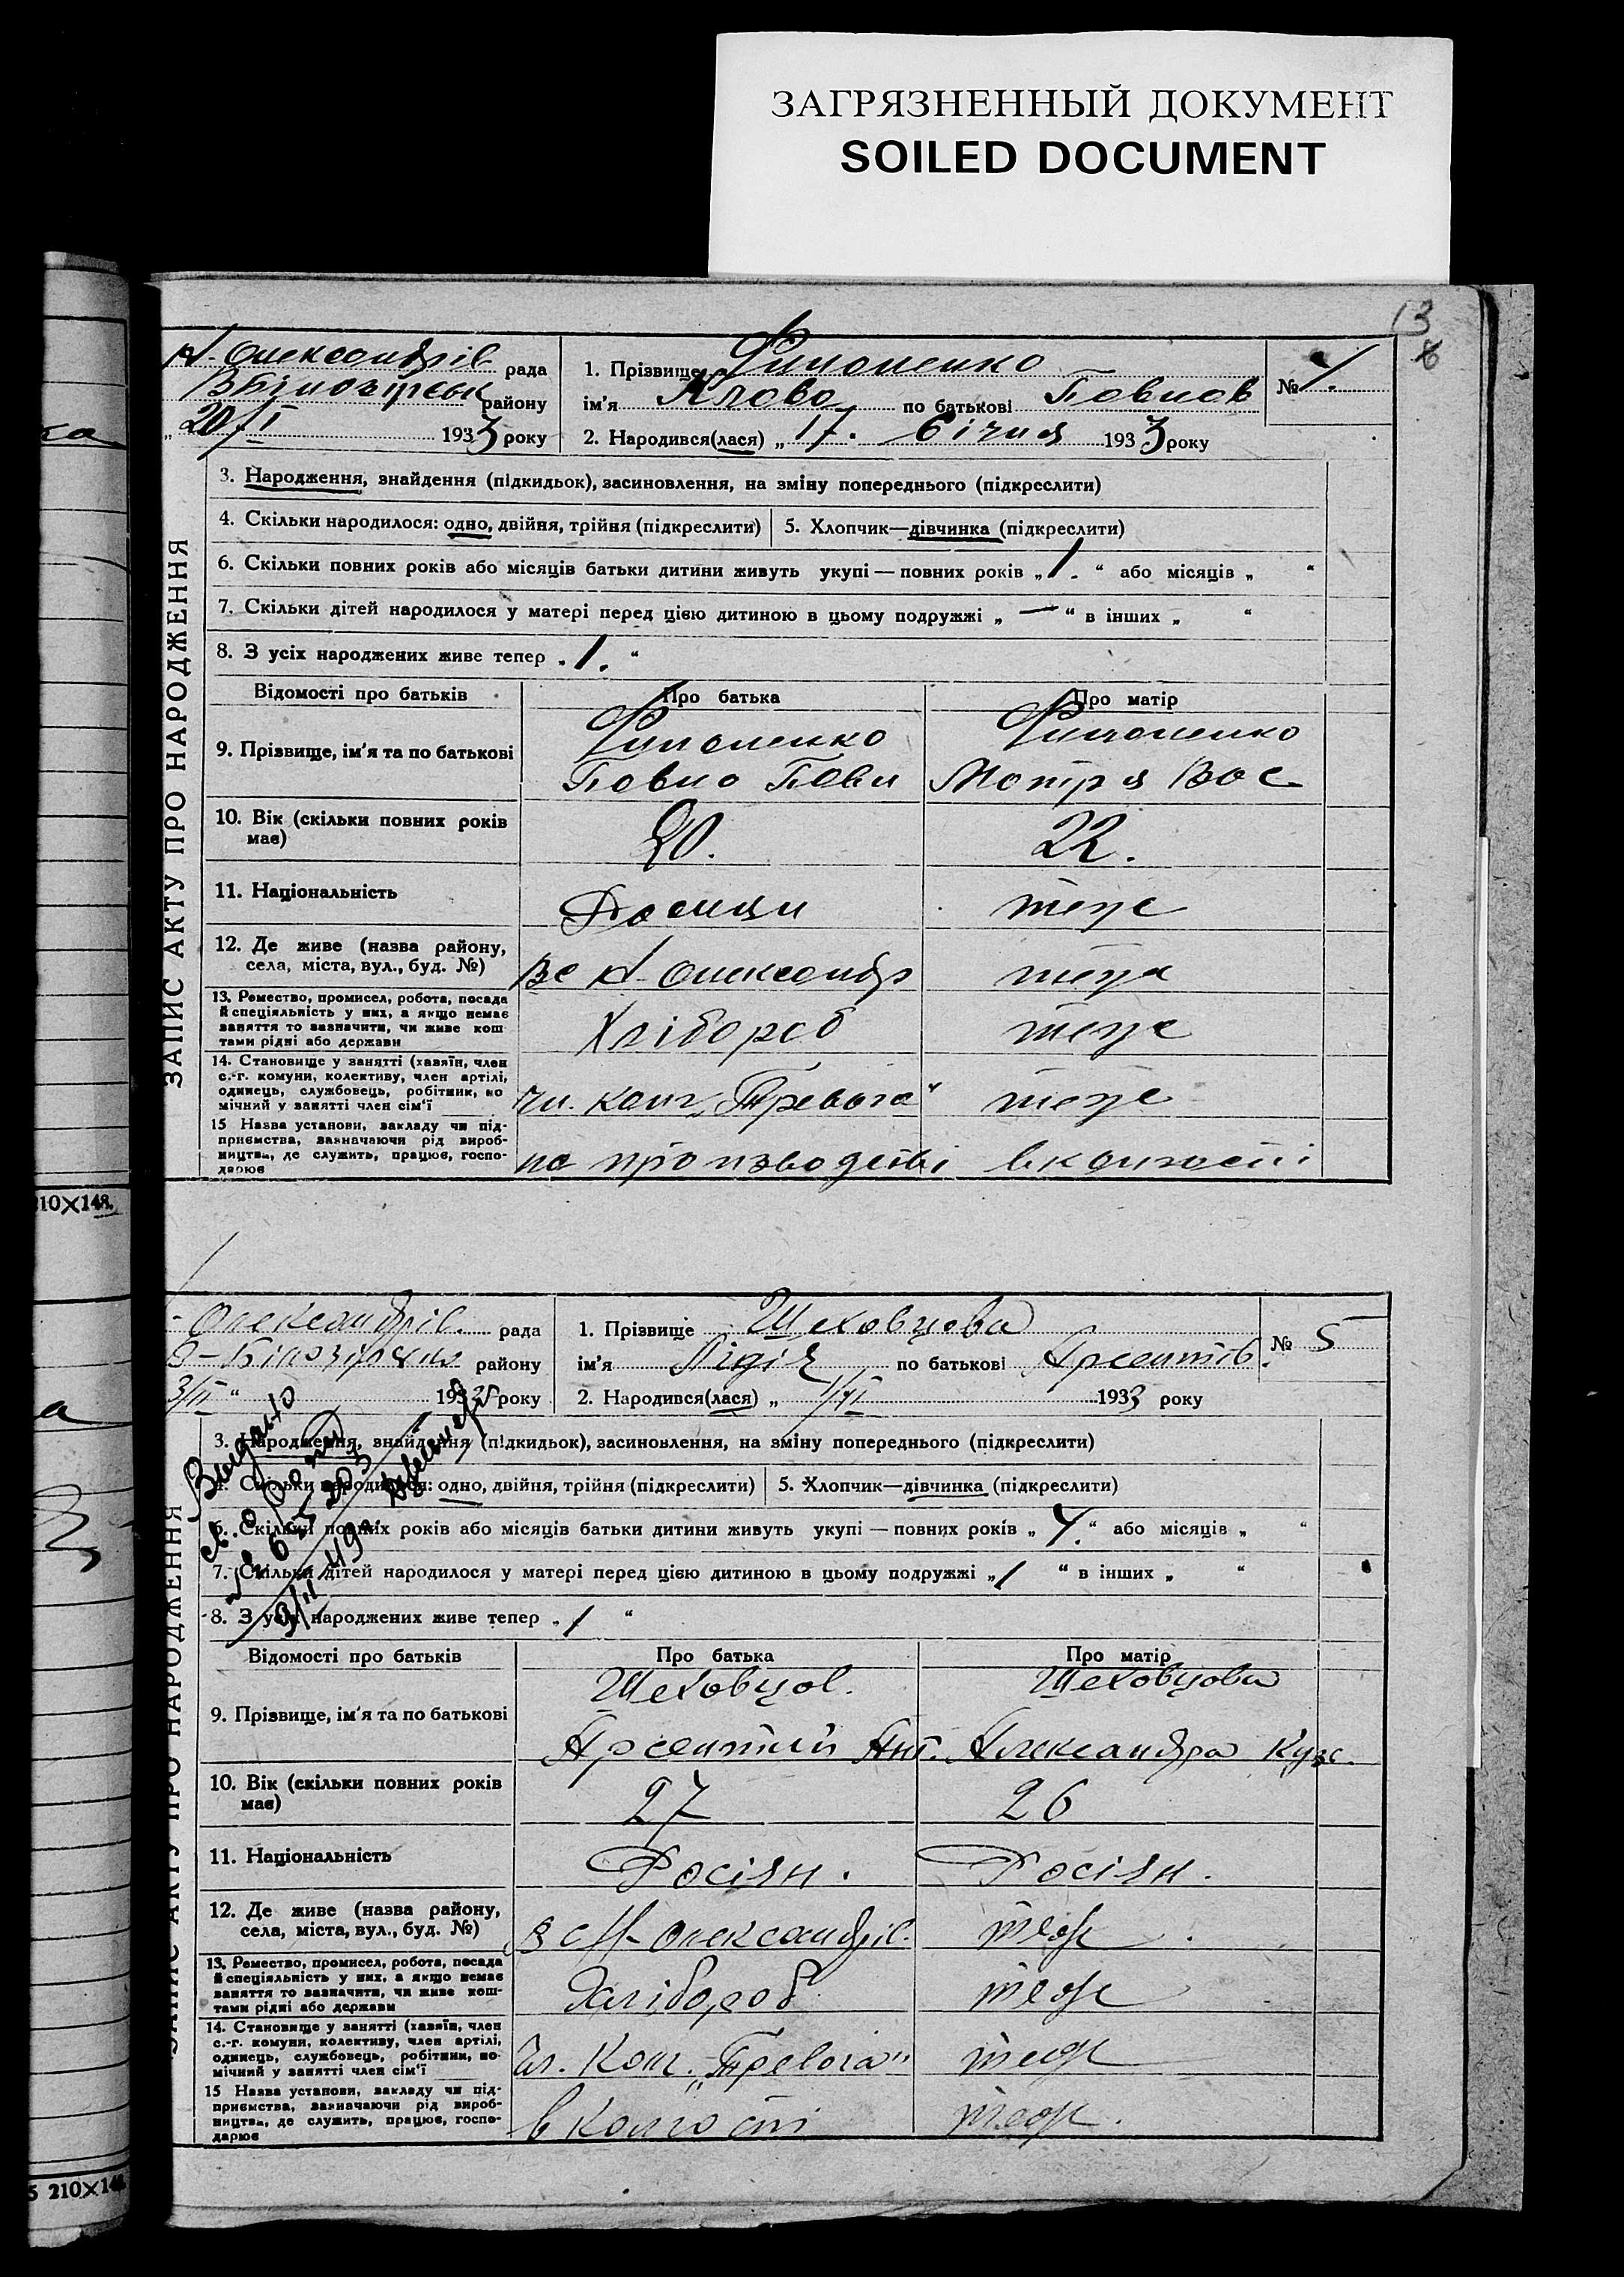 ЗАГРЯЗНЕННЫЙ ДОКУМЕНТ
SOILED DOCUMENT
13
ЗАПИС АКТУ ПРО НАРОДЖЕННЯ
Олександрів рада
району
20/I 1933 року
1. Прізвище Филоненко
ім'я по батькові Павлов
2. Народився(лася) „ 17. Січня 1933 року
№
3. Народження, знайдення (підкидьок), засиновлення, на зміну попереднього (підкреслити)
4. Скільки народилося: одно, двійня, трійня (підкреслити) 5. Хлопчик—дівчинка (підкреслити)
6. Скільки повних років або місяців батьки дитини живуть укупі — повних років „ 1. “ або місяців „ “
7. Скільки дітей народилося у матері перед цією дитиною в цьому подружжі „ — “ в інших „ “
8. З усіх народжених живе тепер „ 1. “
Відомості про батьків Про батька Про матір
9. Прізвище, ім'я та по батькові Филоненко Филоненко
Павло Павл Мотря Вас
10. Вік (скільки повних років має) 20. 22.
11. Національність теже
12. Де живе (назва району, села, міста, вул., буд. №) Олександр теже
13. Ремество, промисел, робота, посада й спеціяльність у них, а якщо немає заняття то зазначити, чи живе коштами рідні або держави Хлібороб теже
14. Становище у занятті (хазяїн, член с.-г. комуни, колективу, член артілі, одинець, службовець, робітник, помічний у занятті член сім'ї чл. колг. „Тревога“ теже
15 Назва установи, закладу чи підприємства, зазначаючи рід виробництва, де служить, працює, господарює на производстві в колгоспі
210×148.
ЗАПИС АКТУ ПРО НАРОДЖЕННЯ
Олександрів. рада
В-Білозірськ району
3/II “ 1933 року
1. Прізвище Шеховцова
ім'я Лідія по батькові Арсентів.
2. Народився(лася) „ 1933 року
№ 5
Выдано
3. Народження, знайдення (підкидьок), засиновлення, на зміну попереднього (підкреслити)
4. Скільки народилося: одно, двійня, трійня (підкреслити) 5. Хлопчик—дівчинка (підкреслити)
6. Скільки повних років або місяців батьки дитини живуть укупі — повних років „ 4. “ або місяців „ “
7. Скільки дітей народилося у матері перед цією дитиною в цьому подружжі „ 1 “ в інших „ “
8. З усіх народжених живе тепер „ 1 “
Відомості про батьків Про батька Про матір
9. Прізвище, ім'я та по батькові Шеховцов. Шеховцова
Арсентий Ант. Александра Кузс.
10. Вік (скільки повних років має) 27 26
11. Національність Росіян. Росіян.
12. Де живе (назва району, села, міста, вул., буд. №) Олександрів. теж
13. Ремество, промисел, робота, посада й спеціяльність у них, а якщо немає заняття то зазначити, чи живе коштами рідні або держави Хлібороб теж
14. Становище у занятті (хазяїн, член с.-г. комуни, колективу, член артілі, одинець, службовець, робітник, помічний у занятті член сім'ї Чл. Колг. „Тревога“ теж
15 Назва установи, закладу чи підприємства, зазначаючи рід виробництва, де служить, працює, господарює в Колгоспі теж.